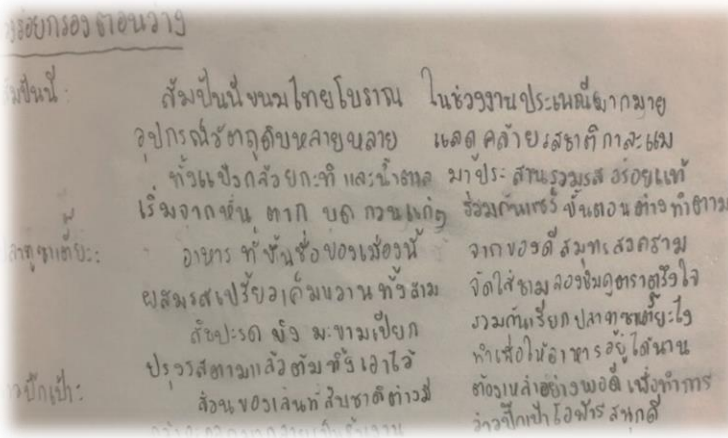 ร้อยกรองตอนว่าง
สัมปันนี: สัมปันนีขนมไทยโบราณ ในช่วงงานประเพณีมากมาย
อุปกรณ์วัตถุดิบหลายหลาย แลดูคล้ายรสชาติกาละแม
ทั้งแป้งกล้วยกะทิและน้ำตาล มาประสานรวมรสอร่อยแท้
เริ่มจากหั่น ตาก บด กวน ขั้นตอนต่างทำตาม
ปลาทูซาเตี๊ยะ: อาหารที่ขึ้นชื่อของเมืองนี้ จากของดีสมุทรสงคราม
ผสมรสเปรี้ยวเค็มหวานทั้งสาม จัดใส่ชามลองชิมดูตราตรึงใจ
สับปะรด มะขามเปียก รวมกันเรียกปลาทูซาเตี๊ยะไง
ปรุงรสตามแล้วต้มทิ้งเอาไว้ ทำเพื่อให้อาหารอยู่ได้นาน
ว่าวปักเป้า: ส่วนของเล่นที่สืบชาติต่างมี ต้องเหลาอย่างพอดีเพื่อทำการ
ว่าวปักเป้า